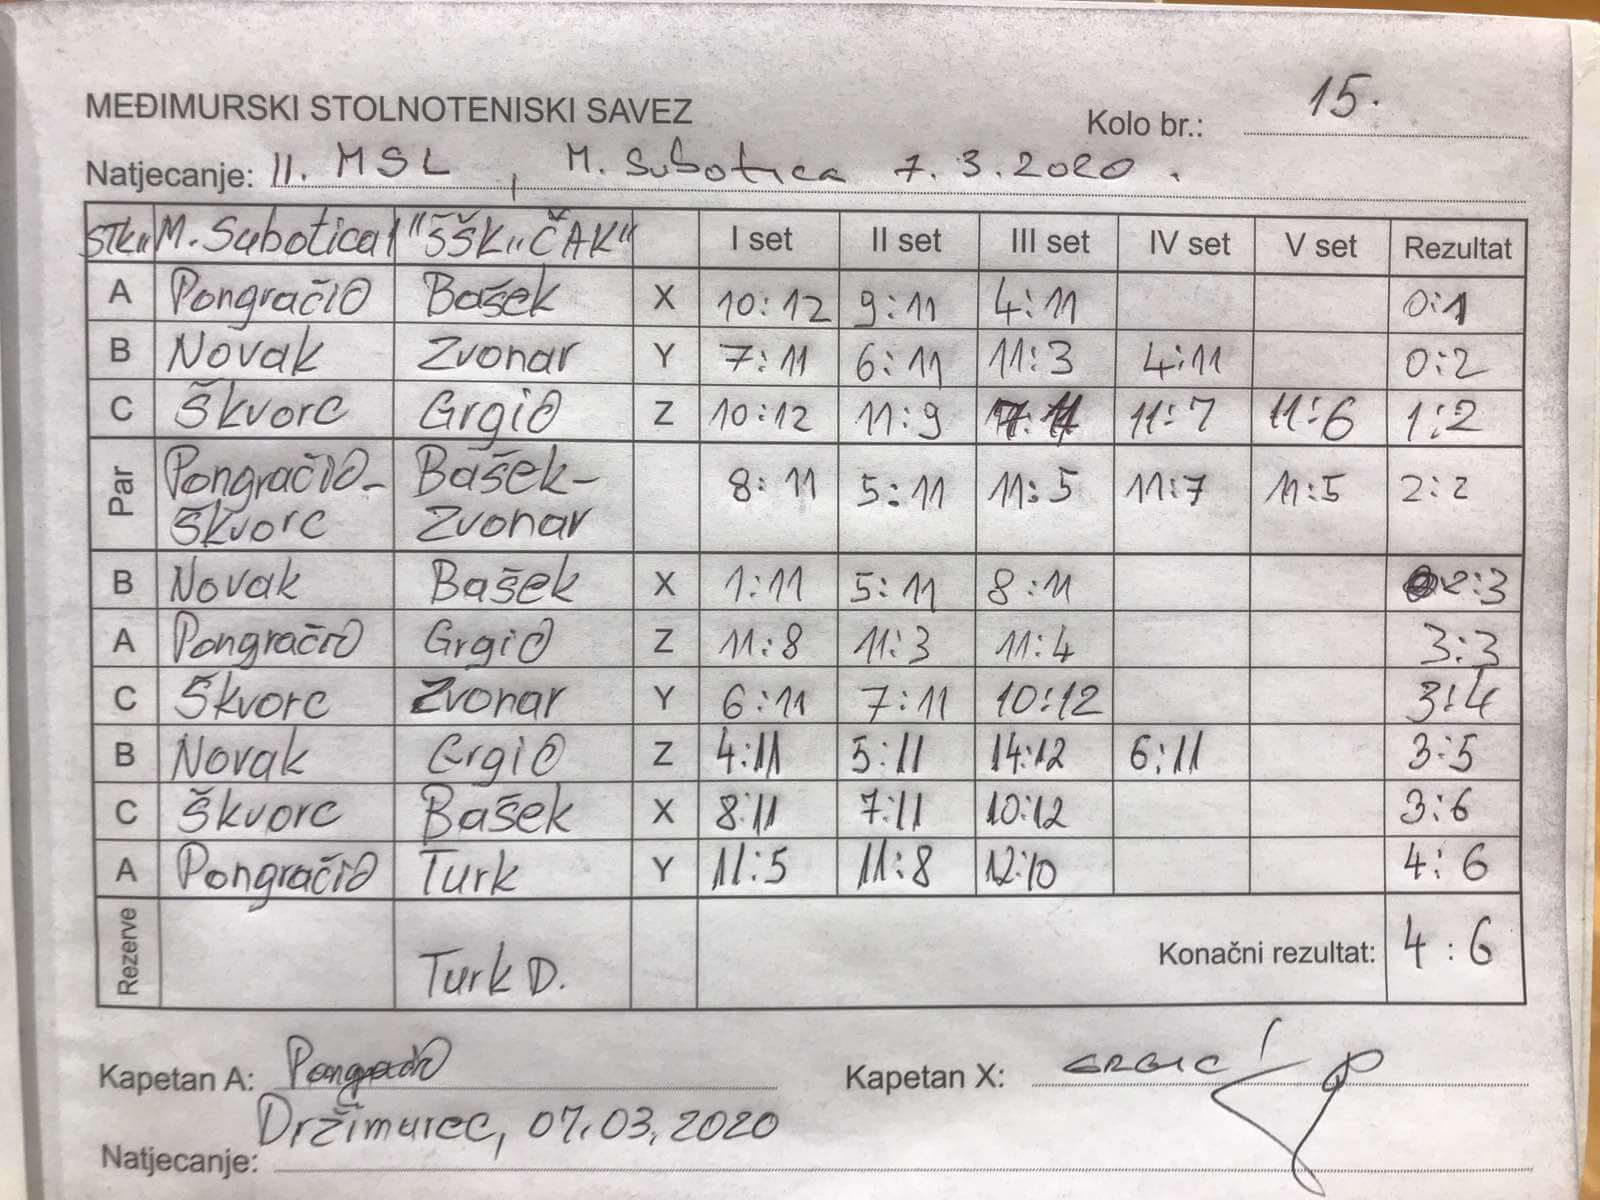 MEĐIMURSKI STOLNOTENISKI SAVEZ
Kolo br.: 15.
Natjecanje: II. MSL, M. Subotica 7.3.2020.
STK„ M. Subotica "ŠŠK„ČAK" I set II set III set IV set V set Rezultat
A Pongračić Bašek X 10:12 9:11 4:11 0:1
B Novak Zvonar Y 7:11 6:11 11:3 4:11 0:2
C Škvorc Grgić Z 10:12 11:9 11:7 11:6 1:2
Par Pongračić- Bašek- 8:11 5:11 11:5 11:7 11:5 2:2
Škvorc Zvonar
B Novak Bašek X 1:11 5:11 8:11 2:3
A Pongračić Grgić Z 11:8 11:3 11:4 3:3
C Škvorc Zvonar Y 6:11 7:11 10:12 3:4
B Novak Grgić Z 4:11 5:11 14:12 6:11 3:5
C Škvorc Bašek X 8:11 7:11 10:12 3:6
A Pongračić Turk Y 11:5 11:8 12:10 4:6
Rezerve Turk D. Konačni rezultat: 4:6
Kapetan A: Kapetan X: GRGIĆ
Držimurec, 07.03.2020
Natjecanje: